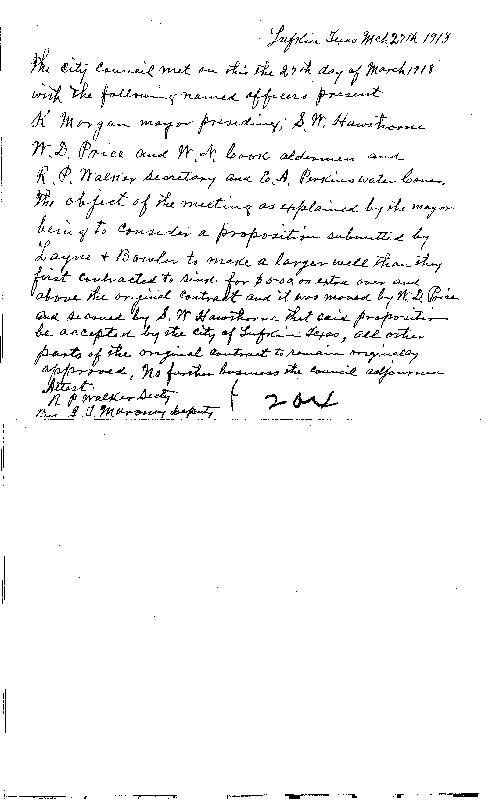 Lufkin Texas Mch 27th 1918
The City Council met on this the 27th day of March 1918
with the following named officers present
K Morgan mayor presiding; S.W. Hawthorne
W.D. Price and W.N. Cook aldermen and
R.P. Walker Secretary and E.A. Perkins water Comr.
The object of the meeting as explained by the mayor
being to consider a proposition submitted by
Layne & Bowler to make a larger well than they
first contracted to sink for extra over and
above the original contract and it was moved by W.D. Price
and second by S.W Hawthorne that said proposition
be accepted by the City of Lufkin Texas, all other
parts of the original contract to remain originally
approved, No further business the council adjourned
Attest
R P Walker Secty
Deputy
204